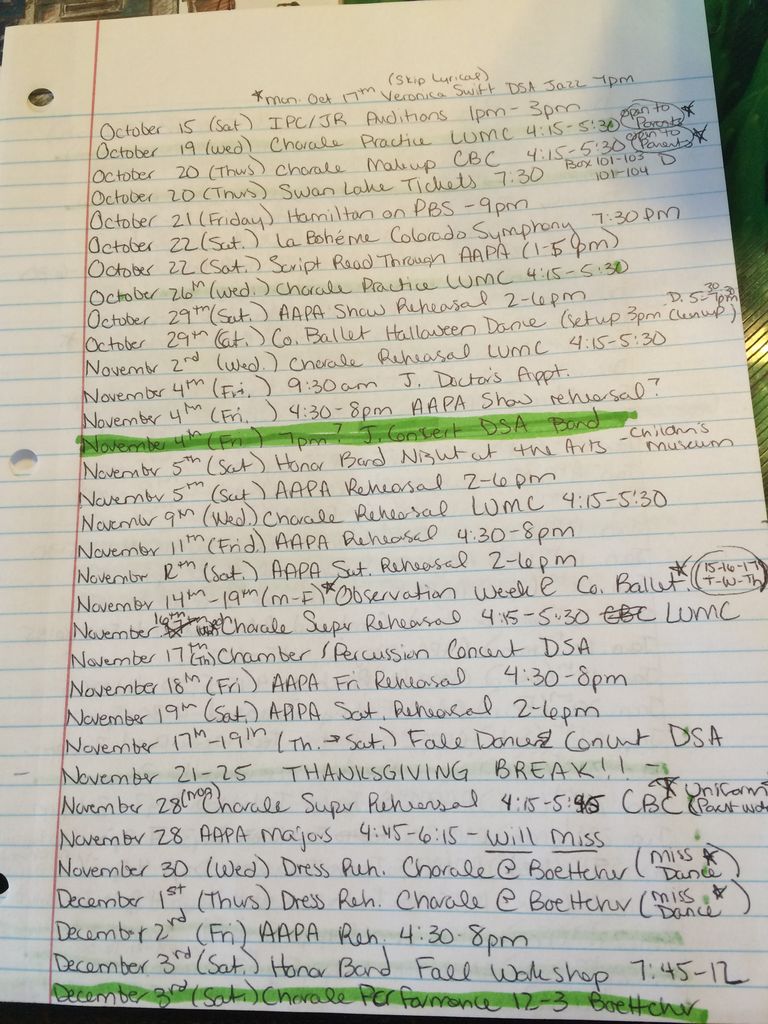 (Skip Lyrical)
*Mon. Oct 17th Veronica Swift DSA Jazz 7pm
October 15 (Sat) IPC/JR Auditions 1pm-3pm
October 19 (Wed) Chorale Practice LUMC 4:15-5:30 open to Parents *
October 20 (Thurs) Chorale Makeup CBC 4:15-5:30 open to Parents *
October 20 (Thurs) Swan Lake Tickets 7:30 Box 101-103 D 101-104
October 21 (Friday) Hamilton on PBS - 9pm
October 22 (Sat.) La Bohéme Colorado Symphony 7:30 pm
October 22 (Sat.) Script Read Through AAPA (1-5pm)
October 26th (Wed.) Chorale Practice LUMC 4:15-5:30
October 29th (Sat.) AAPA Show Rehearsal 2-6pm
October 29th (Sat.) Co. Ballet Halloween Dance (setup 3pm cleanup) D. 5:30-7:30pm
November 2nd (Wed.) Chorale Rehearsal LUMC 4:15-5:30
November 4th (Fri.) 9:30am J. Doctor's Appt.
November 4th (Fri.) 4:30-8pm AAPA Show rehearsal?
November 4th (Fri) 7pm? J. Concert DSA Band
November 5th (Sat) Honor Band Night at the Arts - Children's Museum
November 5th (Sat) AAPA Rehearsal 2-6pm
November 9th (Wed.) Chorale Rehearsal LUMC 4:15-5:30
November 11th (Frid.) AAPA Rehearsal 4:30-8pm
November 12th (Sat.) AAPA Sat. Rehearsal 2-6pm
November 14th-19th (M-F) *Observation Week @ Co. Ballet. * (15-16-17 T-W-Th)
November 16th Wed Chorale Super Rehearsal 4:15-5:30 CBC LUMC
November 17th (Th) Chamber/Percussion Concert DSA
November 18th (Fri) AAPA Fri Rehearsal 4:30-8pm
November 19th (Sat.) AAPA Sat. Rehearsal 2-6pm
November 17th-19th (Th.→Sat.) Fall Dance Concert DSA
November 21-25 THANKSGIVING BREAK!! -
November 28 (Mon) Chorale Super Rehearsal 4:15-5:45 CBC * Uniform
November 28 AAPA Majors 4:45-6:15 - Will Miss
November 30 (Wed) Dress Reh. Chorale @ Boettcher (Miss * Dance)
December 1st (Thurs) Dress Reh. Chorale @ Boettcher (Miss * Dance)
December 2nd (Fri) AAPA Reh. 4:30-8pm
December 3rd (Sat.) Honor Band Fall Workshop 7:45-12
December 3rd (Sat.) Chorale Performance 12-3 Boettcher